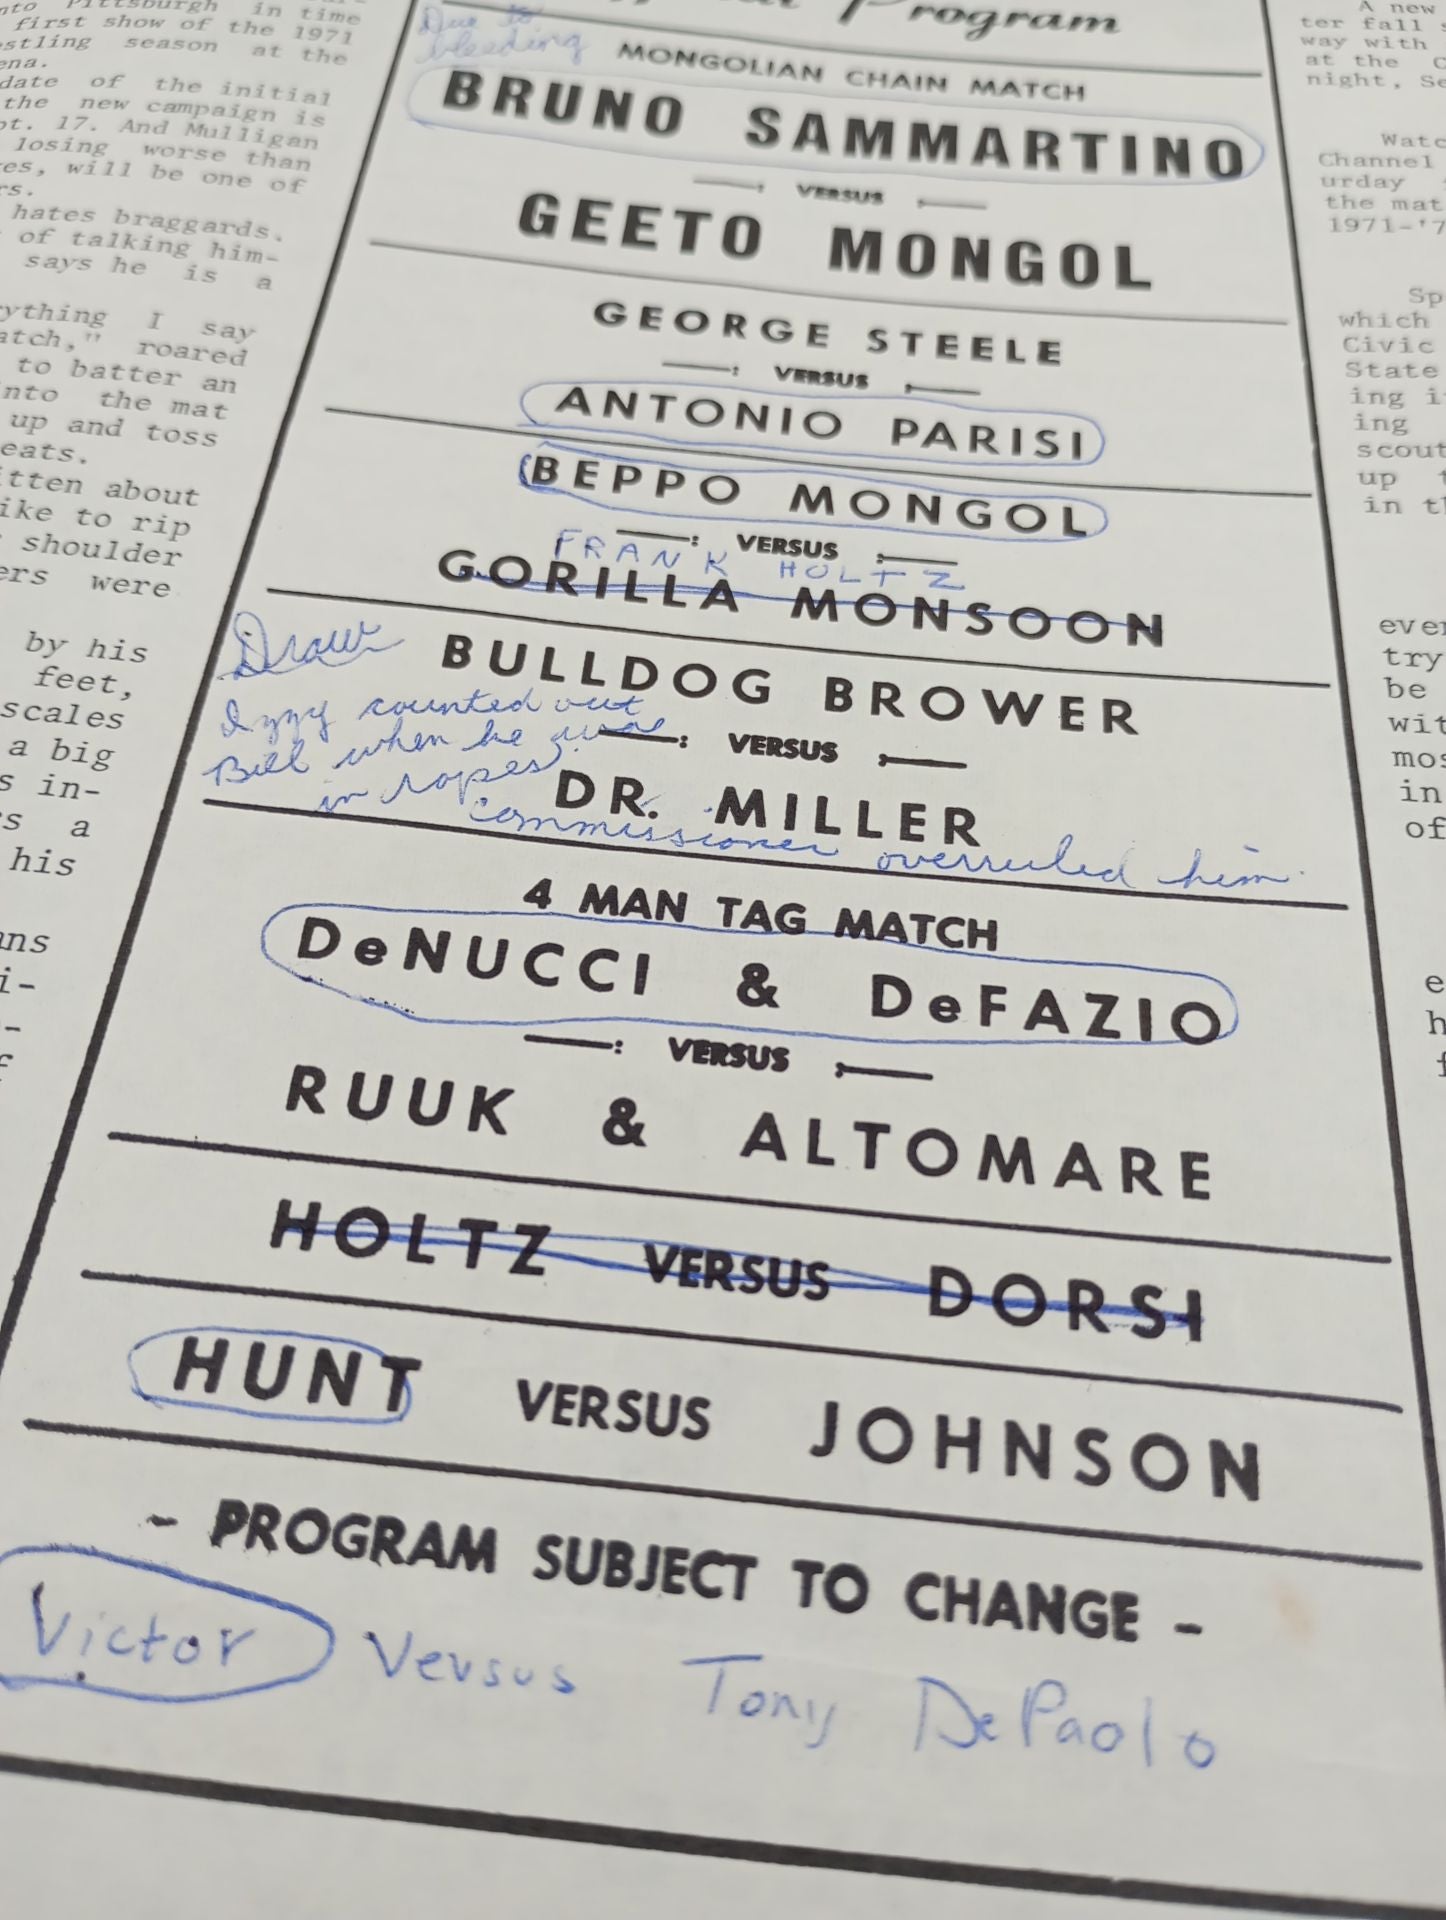 Pittsburgh in time
first show of the 1971
season at the
date of the initial
the new campaign is
17. And Mulligan
losing worse than
will be one of
hates braggards.
of talking him-
says he is a
I say
roared
to batter an
the mat
up and toss
about
like to rip
shoulder
were
by his
feet,
scales
a big
in-
a
his
Program
Due to
bleeding
MONGOLIAN CHAIN MATCH
BRUNO SAMMARTINO
VERSUS
GEETO MONGOL
GEORGE STEELE
VERSUS
ANTONIO PARISI
BEPPO MONGOL
VERSUS
FRANK HOLTZ
GORILLA MONSOON
Draw
BULLDOG BROWER
Izzy counted out
Bill when he was
VERSUS
in ropes
DR. MILLER
commissioner overruled him.
4 MAN TAG MATCH
DeNUCCI & DeFAZIO
VERSUS
RUUK & ALTOMARE
HOLTZ VERSUS DORSI
HUNT VERSUS JOHNSON
- PROGRAM SUBJECT TO CHANGE -
Victor Versus Tony DePaolo
A new
ter fall
way with
at the
night,
Channel
urday
the mat
1971-'7
which
Civic
State
ing
ing
scout
up
in
try
be
in
of